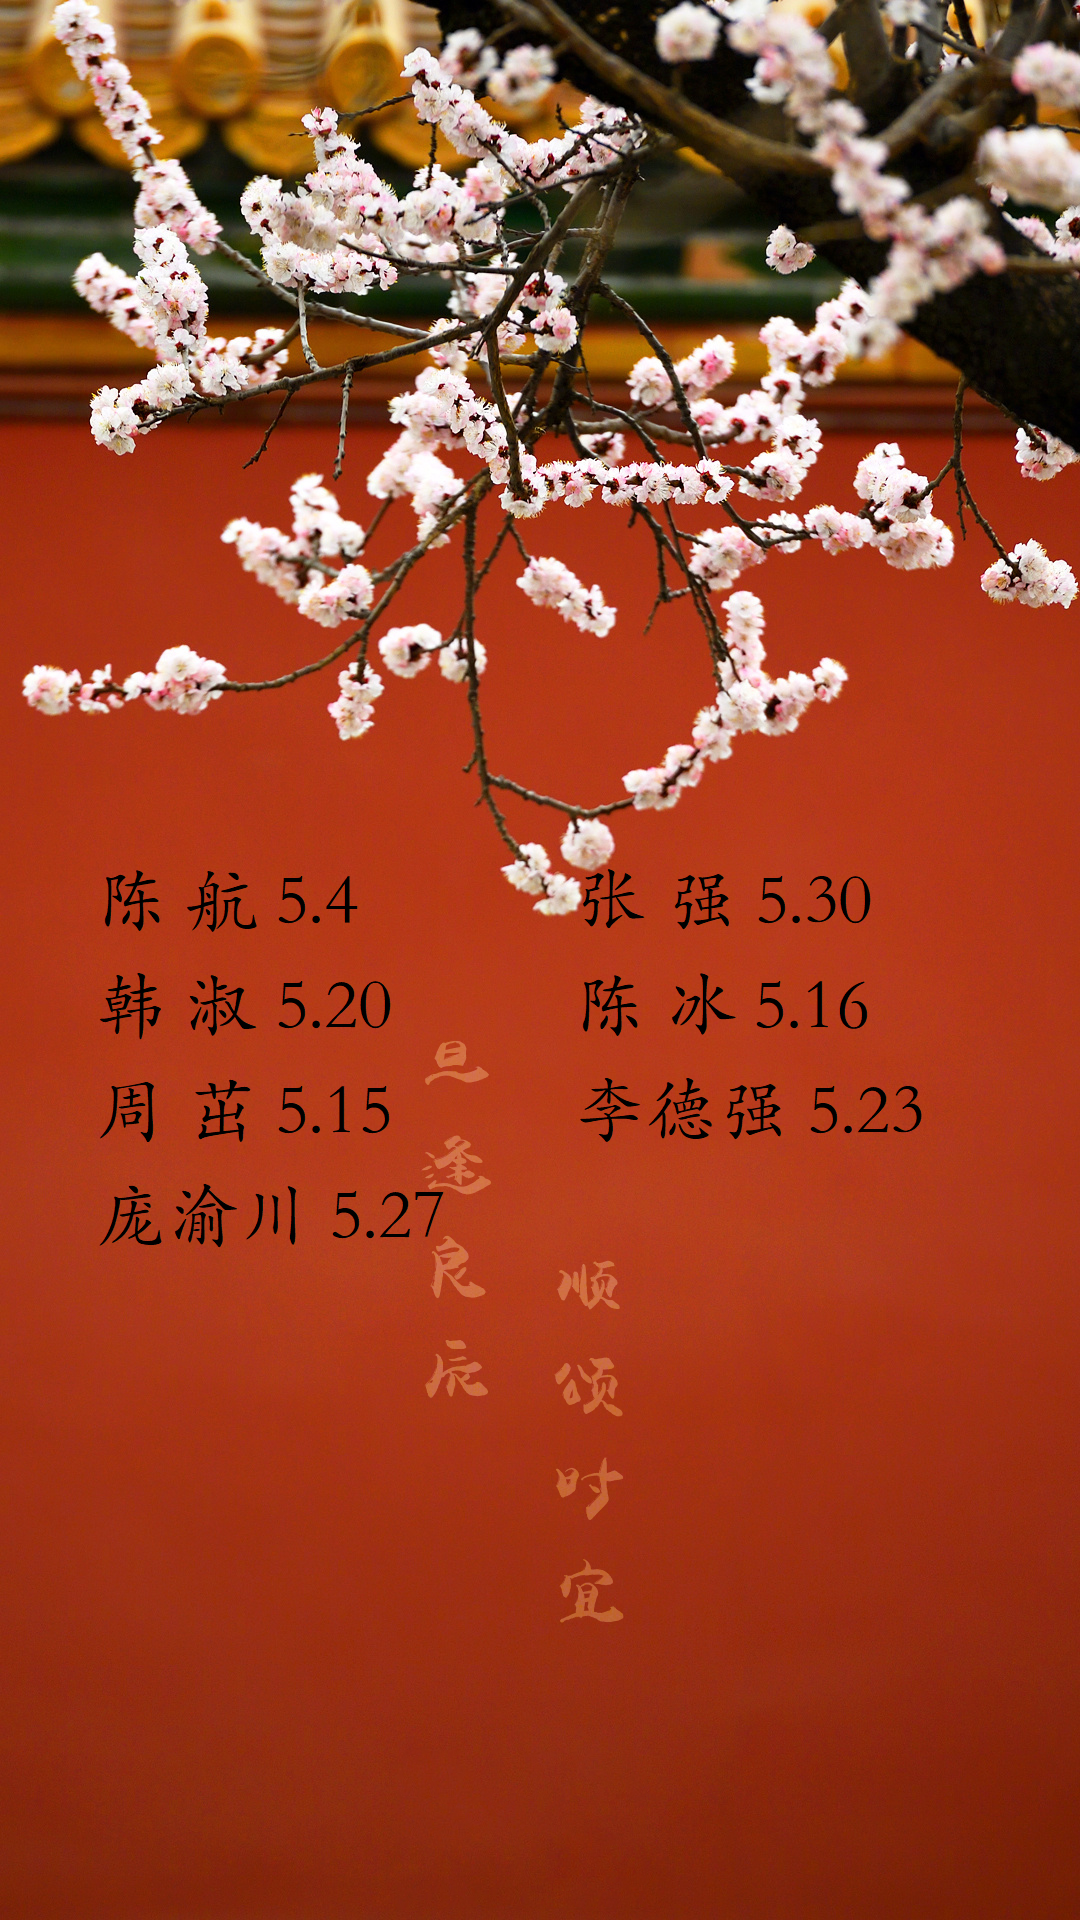 陈 航 5.4
韩 淑 5.20
周 茁 5.15
庞渝川 5.27
张 强 5.30
陈 冰 5.16
李德强 5.23
旦逢良辰
顺颂时宜